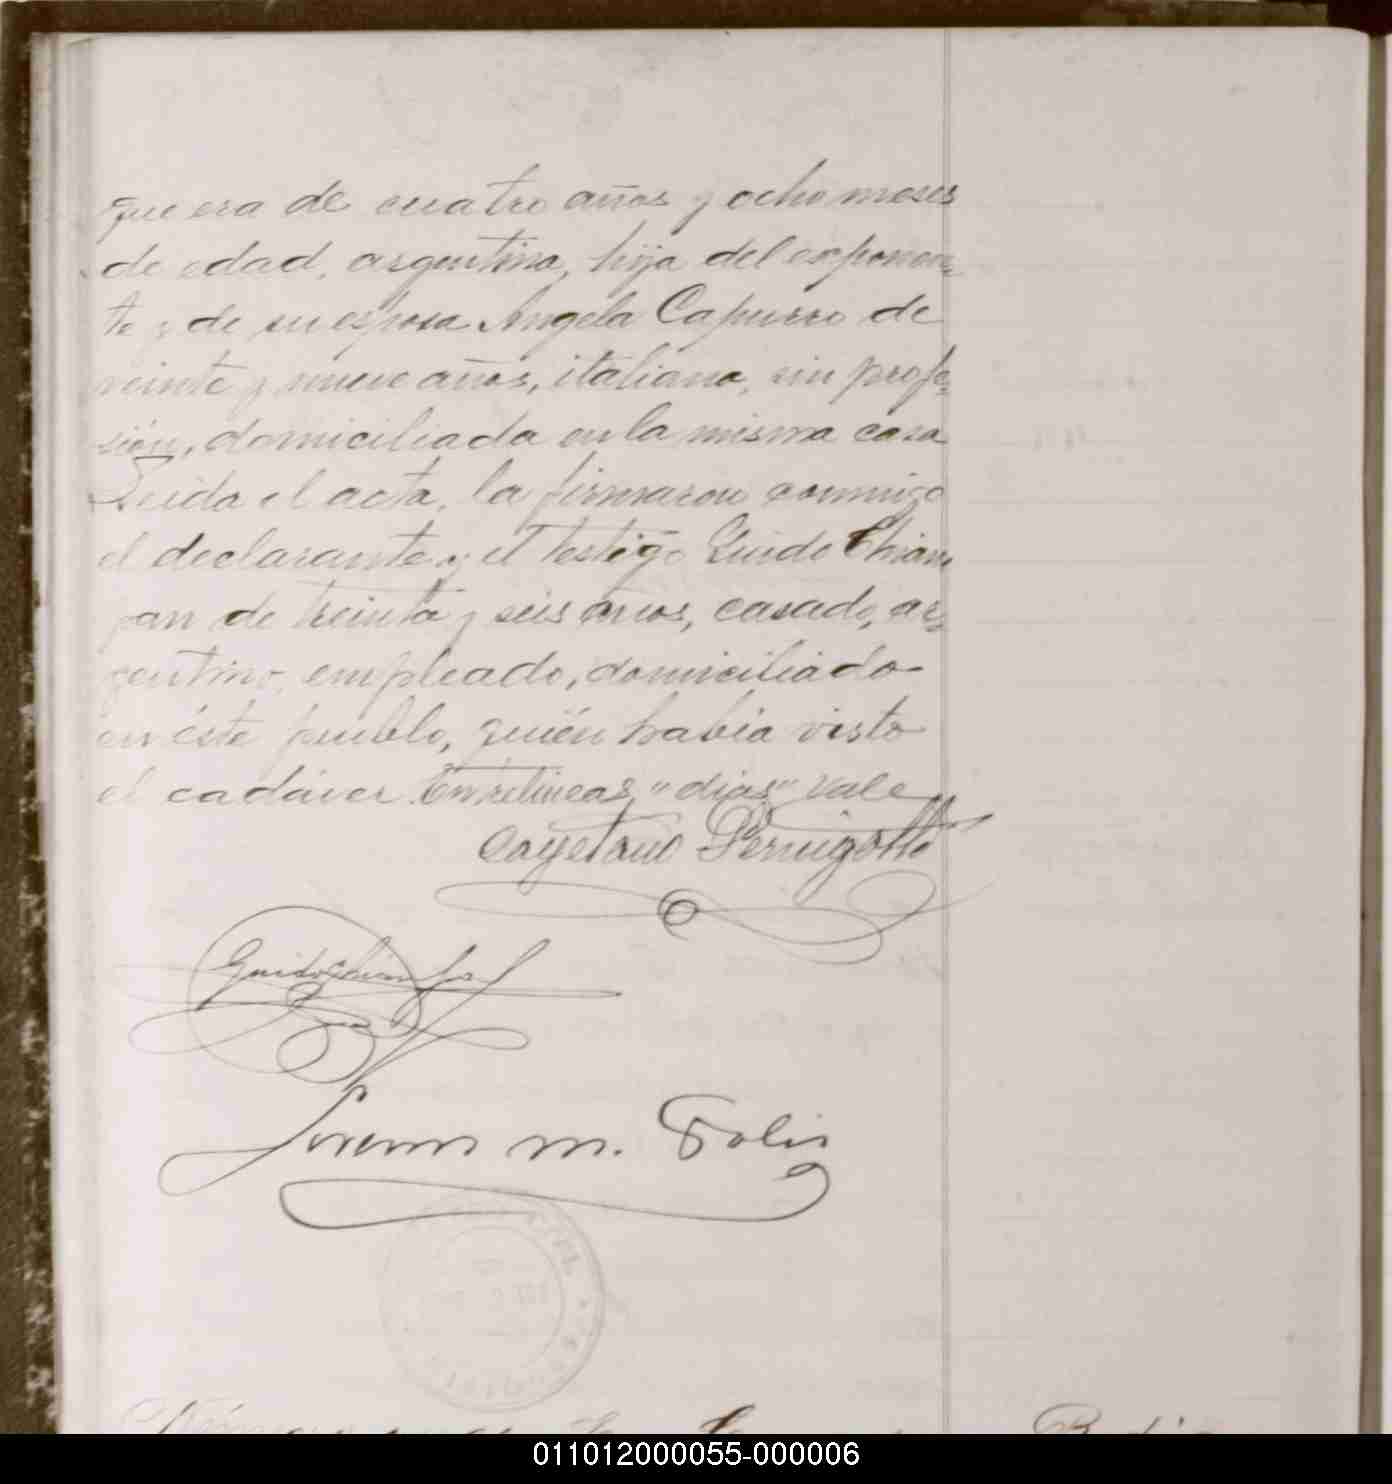 que era de cuatro años y ocho meses
de edad, argentina, hija del exponen-
te y de su esposa Angela Capurro de
veinte y nueve años, italiana, sin profe-
sión, domiciliada en la misma casa
Leida el acta, la firmaron conmigo
el declarante y el testigo Guido Chiam
pan de treinta y seis años, casado, ar-
gentino, empleado, domiciliado
en éste pueblo, quién habia visto
el cadáver. Entrelineas "dias" vale
Cayetano Pernigotti
Guido
m. Solis
011012000055-000006